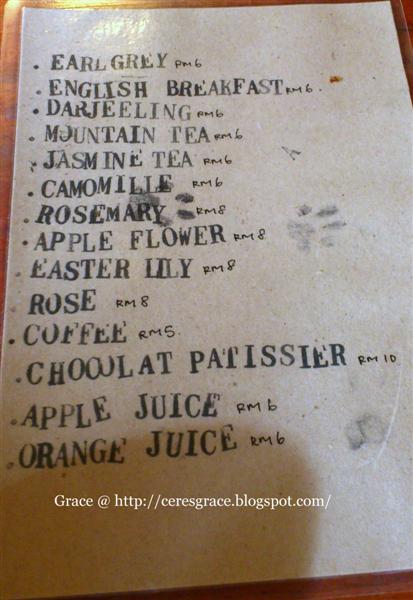 . EARL GREY RM 6
. ENGLISH BREAKFAST RM 6.
. DARJEELING RM 6
. MOUNTAIN TEA RM 6
. JASMINE TEA RM 6
. CAMOMILLE RM 6
. ROSEMARY RM 8
. APPLE FLOWER RM 8
. EASTER LILY RM 8
ROSE RM 8
. COFFEE RM 5.
. CHOCOLAT PATISSIER RM 10
. APPLE JUICE RM 6
. ORANGE JUICE RM 6
Grace @ http://ceresgrace.blogspot.com/